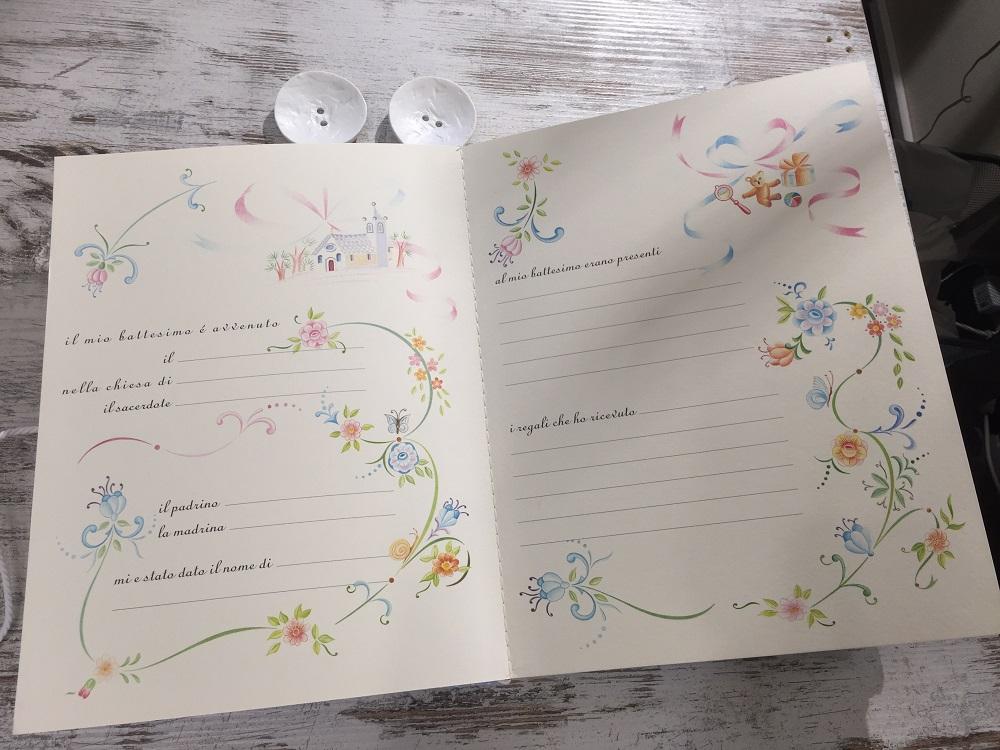 il mio battesimo é avvenuto
il
nella chiesa di
il sacerdote
il padrino
la madrina
mi e stato dato il nome di
al mio battesimo erano presenti
i regali che ho ricevuto